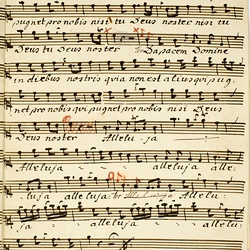 pugnet pro nobis nisi tu Deus noster nisi tu
Deus tu Deus noster Da pacem Domine
in diebus nostris quia non est alius qui pug
net pro nobis qui pugnet pro nobis nisi Deus
Deus noster Allelu ja
Alleluja alleluja alle
luja alleluja alleluja
ja alleluja alleluja